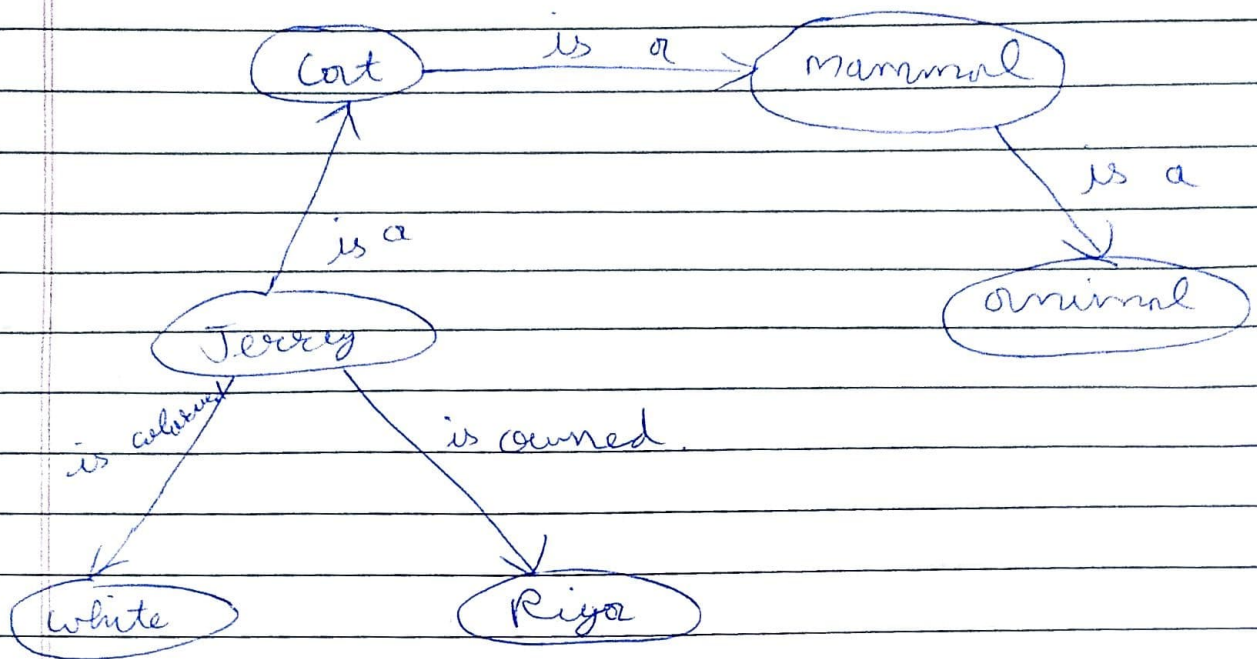 Cat is a mammal
is a
is a
animal
Jerry
is coloured
is owned.
white
Riya